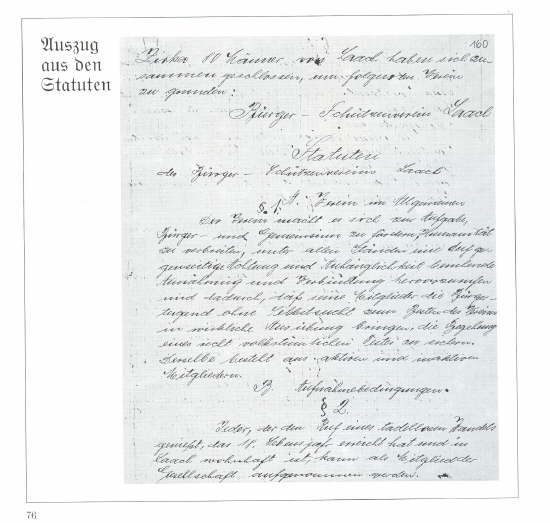 Auszug
aus den
Statuten
160
Zirka 80 Männer von Laach haben sich zu-
sammen geschlossen, um folgenden Verein
zu gründen:
Bürger - Schützenverein Laach
Statuten
des Bürger - Schützenvereins Laach
§ 1. A. Verein im Allgemeinen
Der Verein macht es sich zur Aufgabe,
Bürger - und Gemeinsinn zu fördern, Humanität
zu verbreiten, unter allen Ständen eine auf ge-
genseitige Achtung und Anhänglichkeit
Annäherung und Verbindung hervorzurufen
und dadurch, daß seine Mitglieder die Bürger-
tugend ohne Selbstsucht zum Besten des Vereins
in wirkliche Ausübung bringen, die
eines echt volkstümlichen zu sichern.
Derselbe besteht aus aktiven und inaktiven
Mitgliedern.
B. Aufnahmebedingungen.
§ 2.
Jeder, der den Ruf eines tadellosen Wandels
genießt, das 18. Lebensjahr erreicht hat und in
Laach wohnhaft ist, kann als Mitglied der
Gesellschaft aufgenommen werden.
76